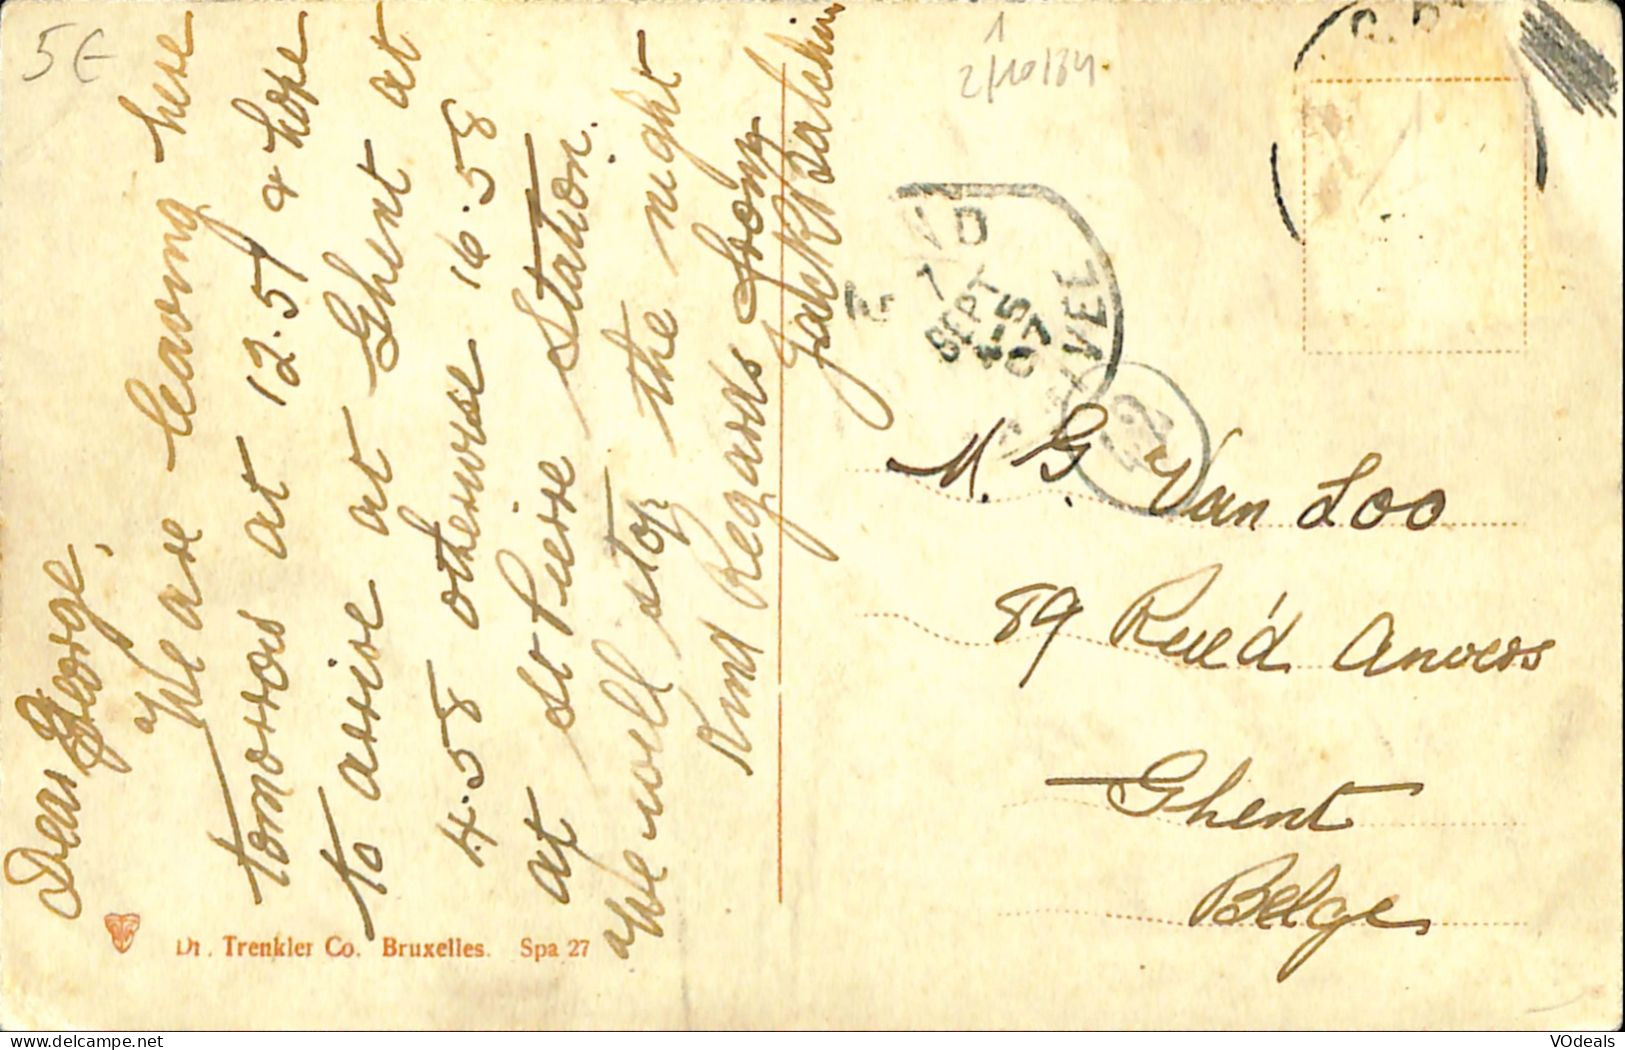 5 €
1
2/10/84
Dear George,
We are leaving here
tomorrow at 12.51 & hope
to arrive at Ghent at
4.58 otherwise 16.58
at St Pierre Station.
We will stop the night
Kind Regards from
Jack
7
SEPT
4-5
07
42
M. G. Van Loo
89 Rue d'Anvers
Ghent
Belge
Dr. Trenkler Co. Bruxelles. Spa 27
VOdeals